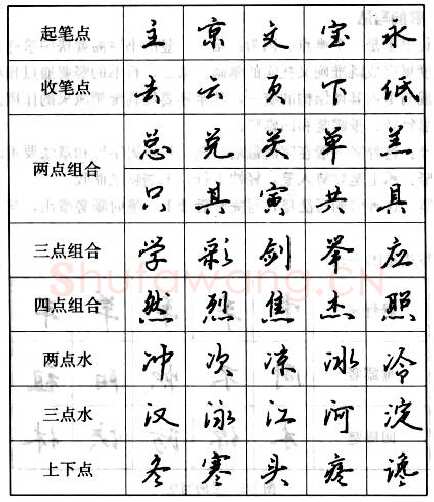 起笔点 主 京 文 宝 永
收笔点 去 云 页 下 低
两点组合 总 兑 关 单 羔
只 其 寅 共 具
三点组合 学 彩 剑 举 应
四点组合 然 烈 焦 杰 照
两点水 冲 次 凉 冰 冷
三点水 汉 泳 江 河 淀
上下点 冬 寒 头 疼 谗
Shufawang.CN